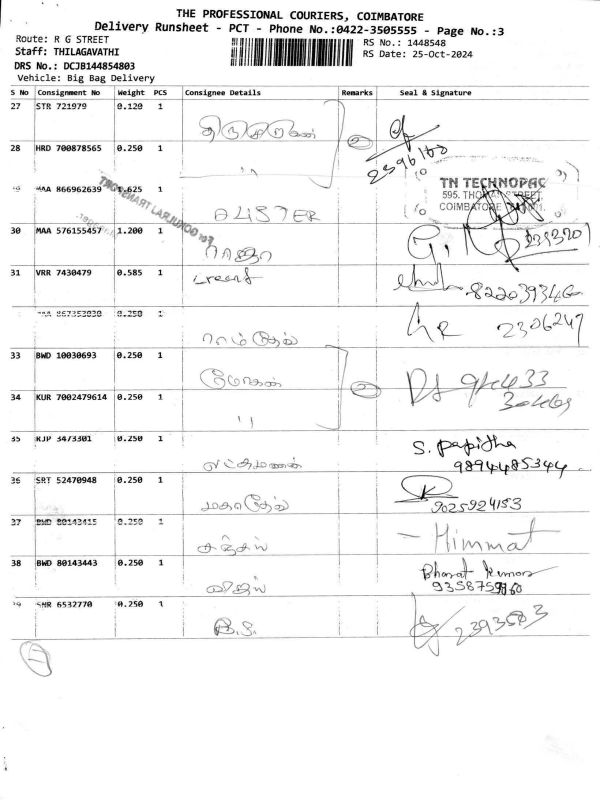 THE PROFESSIONAL COURIERS, COIMBATORE
Delivery Runsheet - PCT - Phone No.:0422-3505555 - Page No.:3
Route: R G STREET
RS No.: 1448548
Staff: THILAGAVATHI
RS Date: 25-Oct-2024
DRS No.: DCJB144854803
Vehicle: Big Bag Delivery
S No Consignment No Weight PCS Consignee Details Remarks Seal & Signature
27 STR 721979 0.120 1
28 HRD 700878565 0.250 1 "
2596160
MAA 866962639 1.625 1 ALISTER
TN TECHNOPAC
595, THOMAS STREET,
COIMBATORE
30 MAA 576155457 1.200 1 ராஜா
31 VRR 7430479 0.585 1
MAA 867353030 0.250 1 ராம்தேவ் 2306247
33 BWD 10030693 0.250 1 மோகன்
34 KUR 7002479614 0.250 1 "
35 RJP 3473301 0.250 1 லட்சுமணன் S. Papitha
9894485344
36 SRT 52470948 0.250 1 மகாதேவ் 9025924153
37 BWD 80143415 0.250 1 Himmat
38 BWD 80143443 0.250 1 Bharat Kumar
SNR 6532770 0.250 1 B.S.